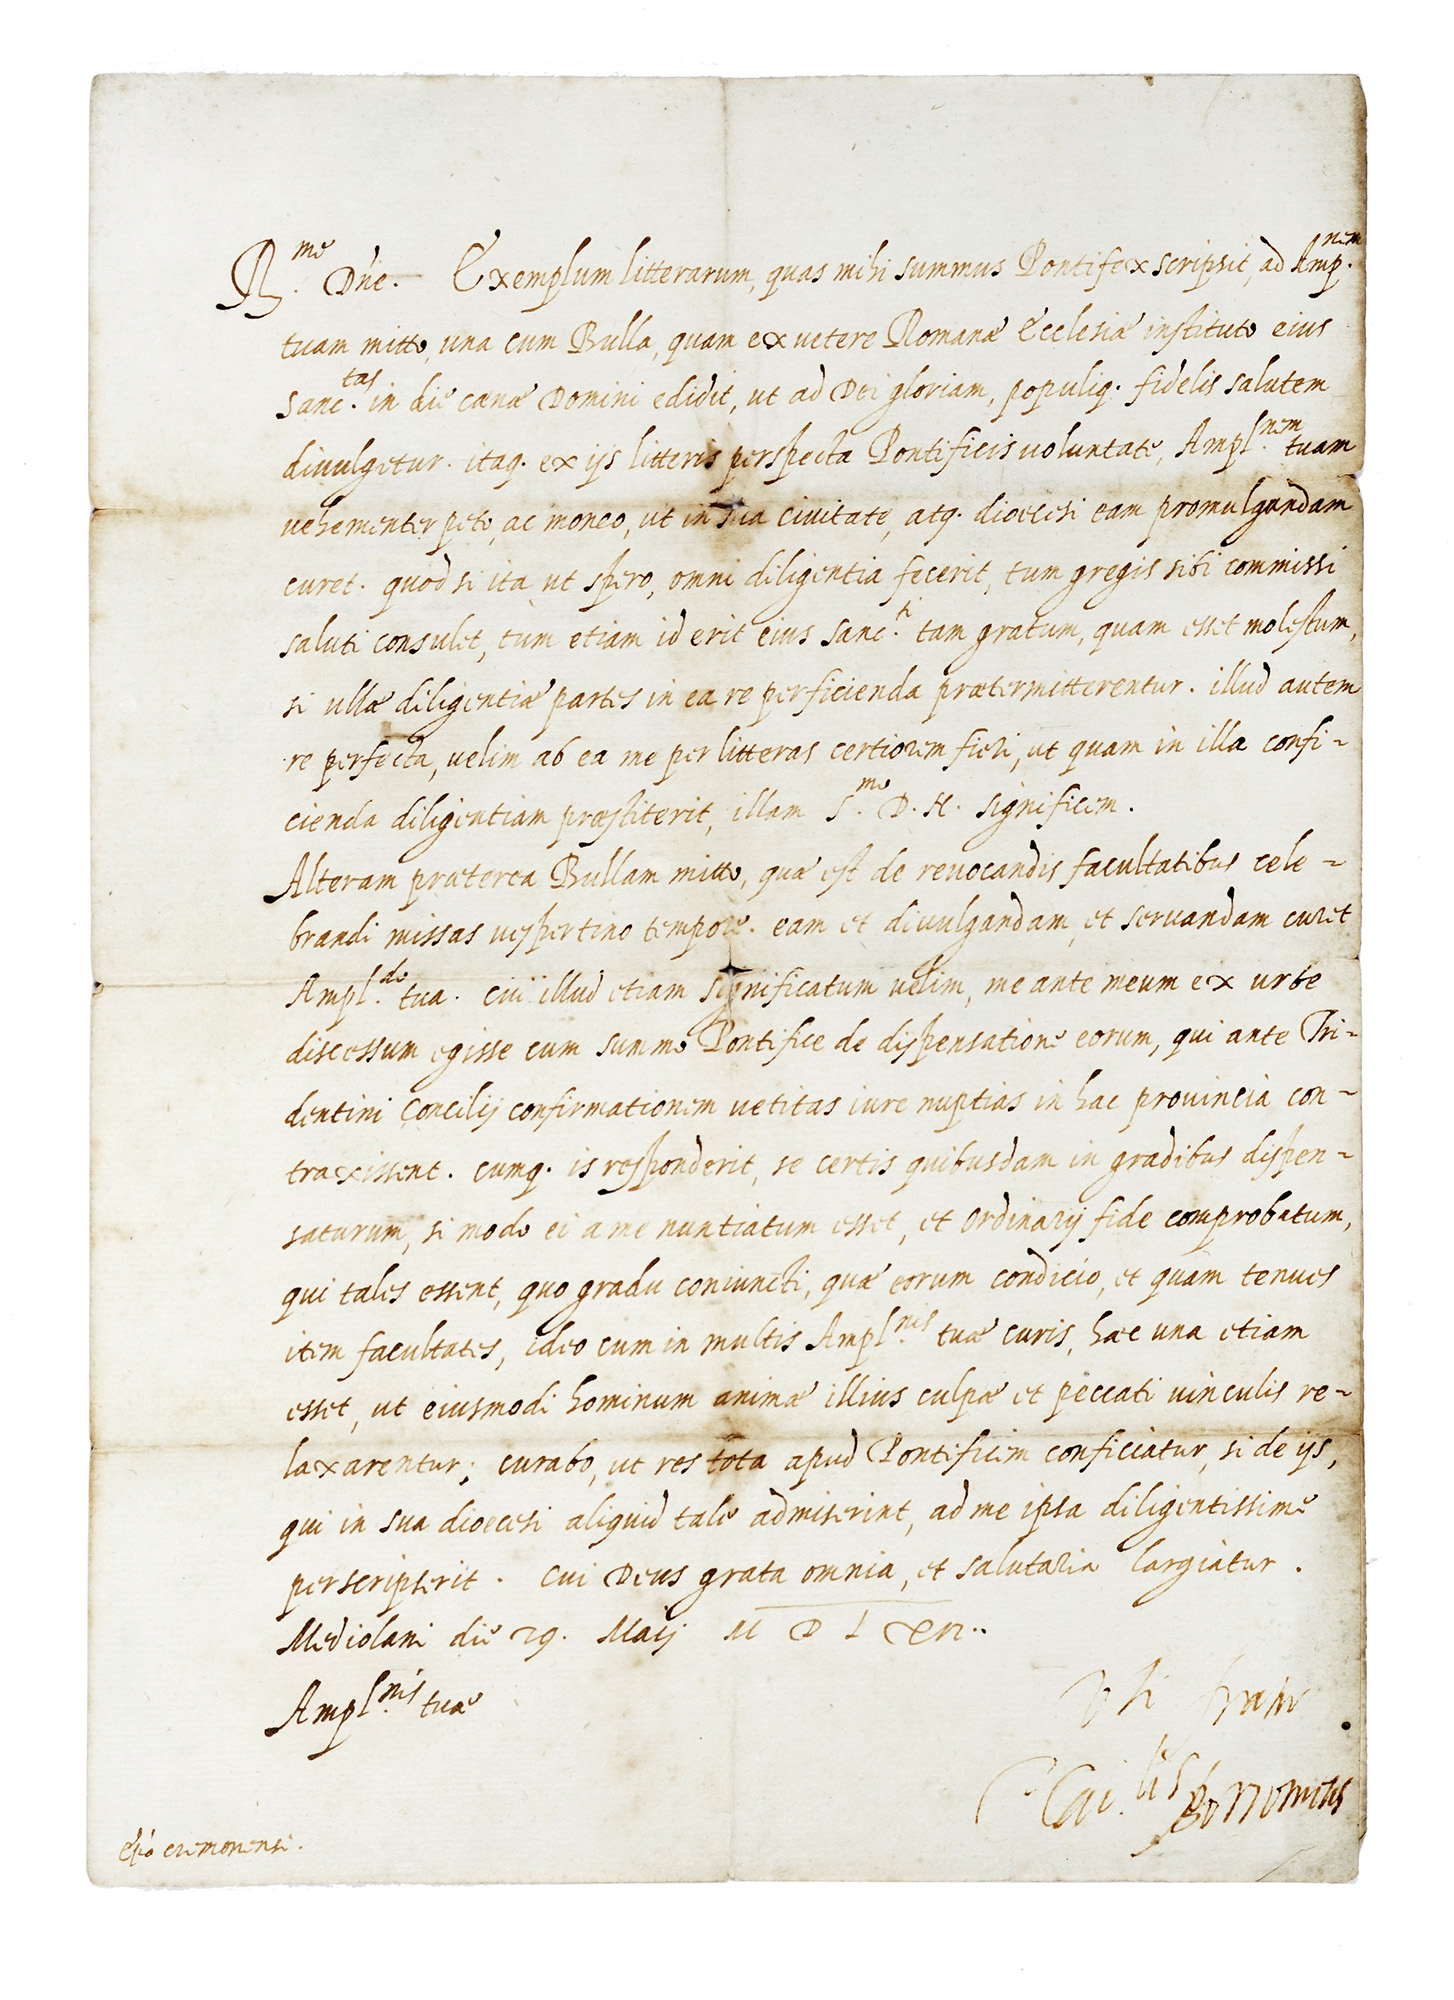 R.me Dne. Exemplum litterarum, quas mihi summus Pontifex scripsit, ad Amp.nem
tuam mitto, una cum Bulla, quam ex vetere Romanæ Ecclesiæ instituto eius
Sanc.tas in die cœnæ Domini edidit, ut ad Dei gloriam, populiq. fidelis salutem
divulgetur. itaq. ex ijs litteris perspecta Pontificis voluntate, Ampl.nem tuam
vehementer peto, ac moneo, ut in sua civitate, atq. dioecesi eam promulgandam
curet. quod si ita, ut spero, omni diligentia fecerit, tum gregis sibi commissi
saluti consulet, tum etiam id erit eius Sanc.ti tam gratum, quam esset molestum,
si ullæ diligentiæ partes in ea re perficienda prætermitterentur. illud autem
re perfecta, velim ab ea me per litteras certiorem fieri, ut quam in illa confi-
cienda diligentiam præstiterit, illam S.mo D. N. significem.
Alteram præterea Bullam mitto, quæ est de revocandis facultatibus cele-
brandi missas vespertino tempore. eam et divulgandam, et servandam curet
Ampl.do tua. cui illud etiam significatum velim, me ante meum ex urbe
discessum egisse cum summo Pontifice de dispensatione eorum, qui ante Tri-
dentini Concilij confirmationem vetitas iure nuptias in hac provincia con-
traxissent. cumq. is responderit, se certis quibusdam in gradibus dispen-
saturum, si modo ei a me nuntiatum esset, et Ordinarij fide comprobatum,
qui tales essent, quo gradu coniuncti, quæ eorum condicio, et quam tenues
item facultates, ideo cum in multis Ampl.nis tuæ curis, hæc una etiam
esset, ut eiusmodi hominum animæ illius culpæ et peccati vinculis re-
laxarentur; curabo, ut res tota apud Pontificem conficiatur, si de ijs,
qui in sua dioecesi aliquid tale admiserint, ad me ipsa diligentissime
perscripserit. cui Deus grata omnia, et salutaria largiatur.
Mediolani die 29. Maij M D L XVI..
Ampl.nis tuæ
Vti frater
Car.lis Borromeus
Epo cremonensi.